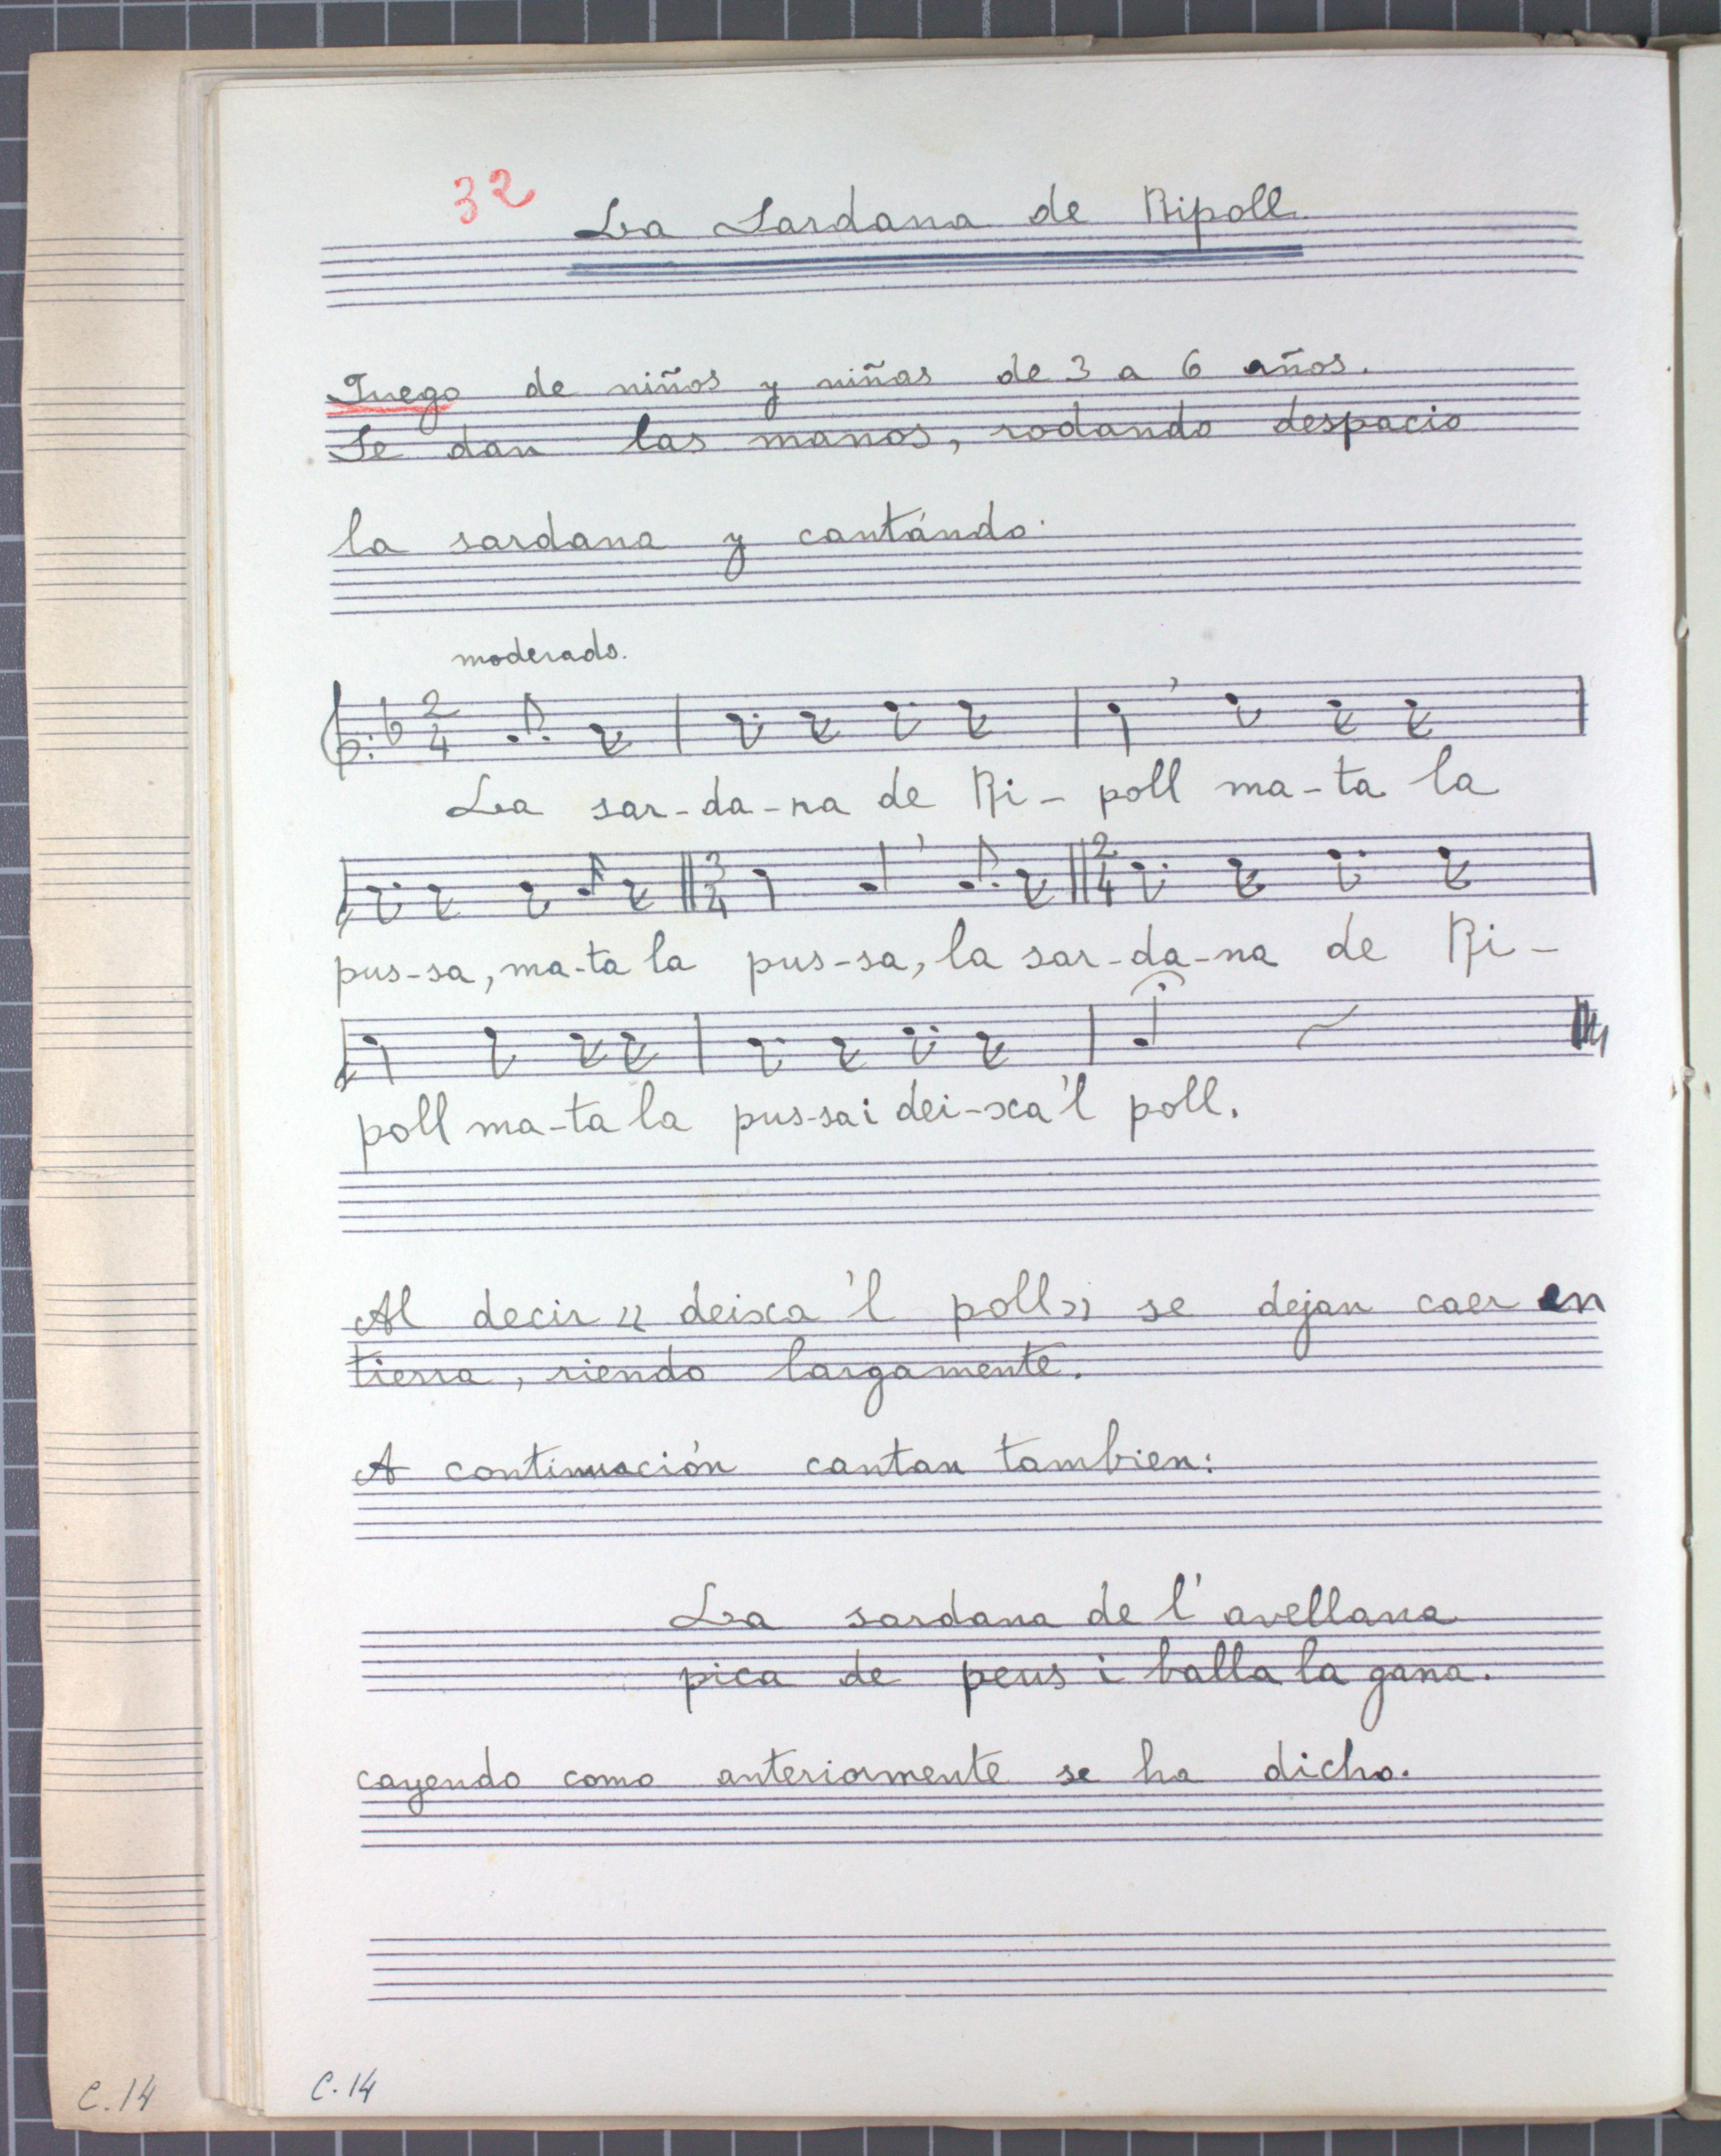 32 La Sardana de Ripoll
Juego de niños y niñas de 3 a 6 años.
Se dan las manos, rodando despacio
la sardana y cantándo.
moderado.
2
4
La sar-da-na de Ri- poll ma-ta la
3
4
2
4
pus-sa, ma-ta la pus-sa, la sar-da-na de Ri-
poll ma-ta la pus-sa i dei-xa'l poll.
Al decir « deixa 'l poll» se dejan caer en
tierra, riendo largamente.
A continuación cantan tambien:
La sardana de l'avellana
pica de peus i balla la gana.
cayendo como anteriormente se ha dicho.
C.14 C.14